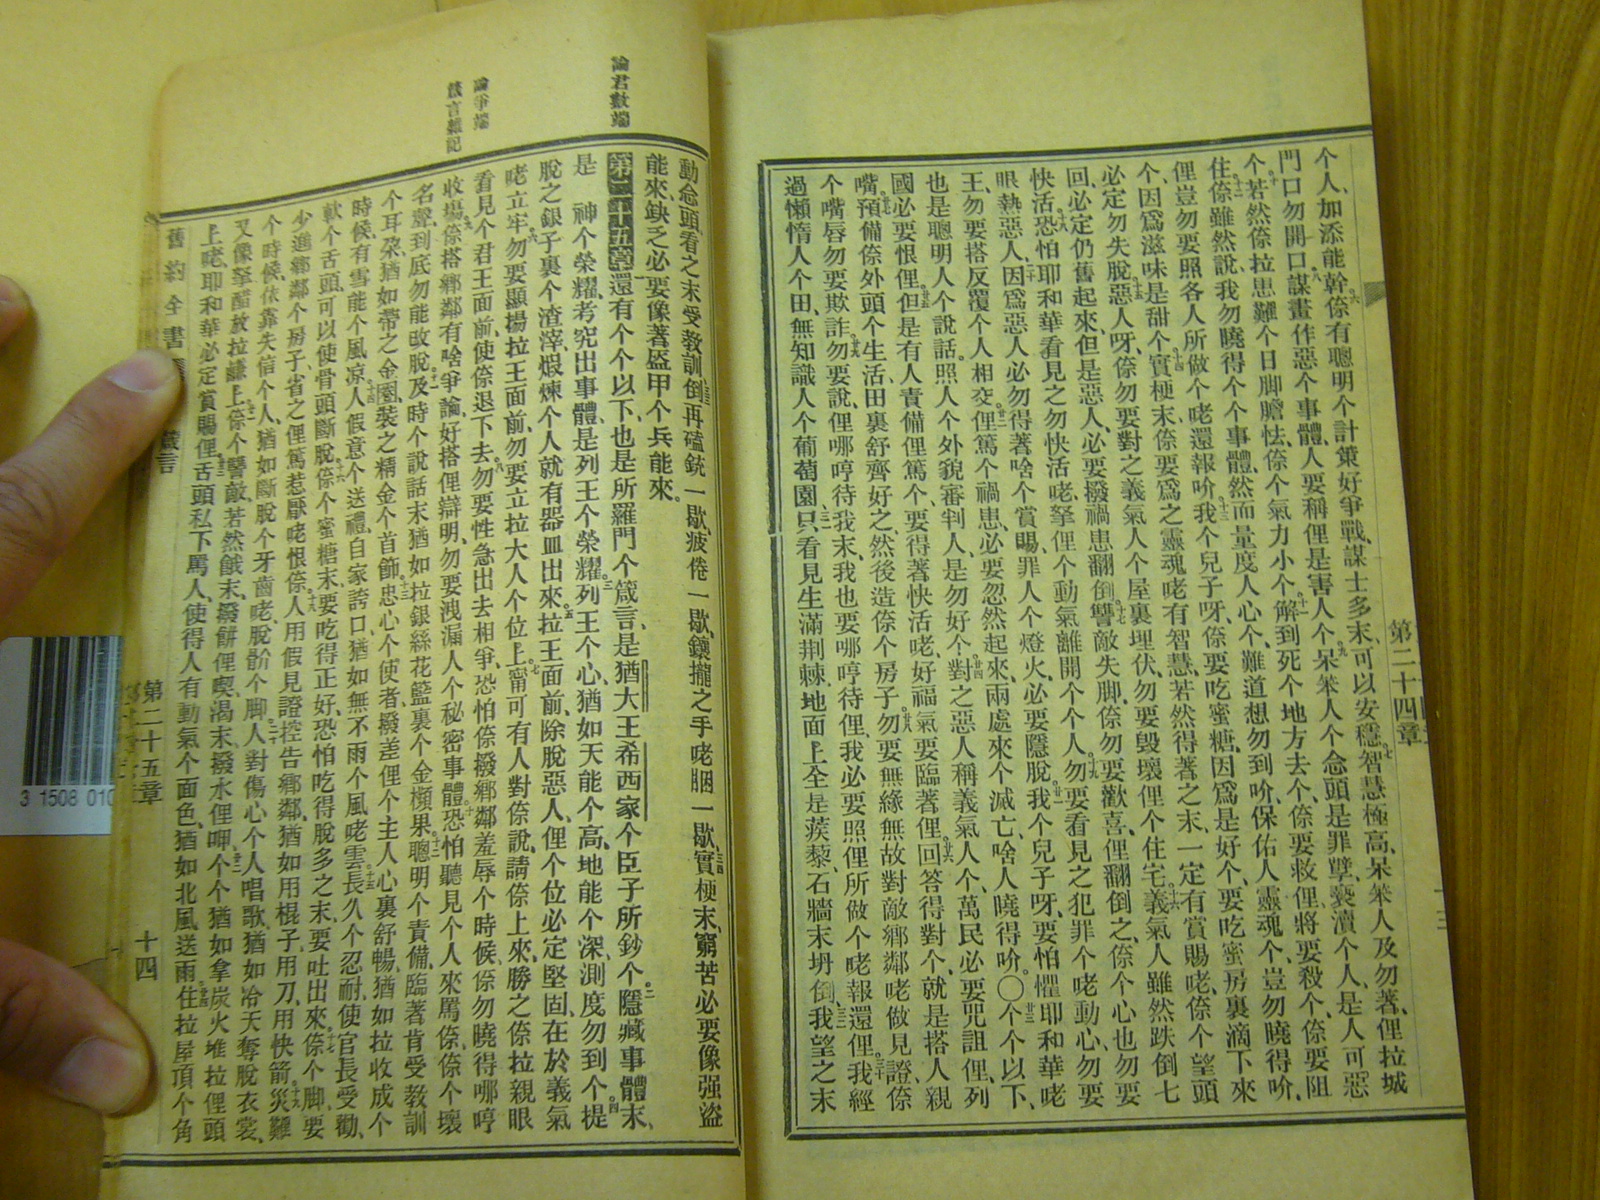 第二十四章
十三
个人、加添能幹、倷有聰明个計策好爭戰、謀士多末、可以安穩、智慧極高、呆笨人及勿著、俚拉城
門口勿開口、謀畫作惡个事體、人要稱俚是害人个、呆笨人个念頭是罪孽、褻瀆个人、是人可惡
个、若然倷拉患難个日脚膽怯、倷个氣力小个、解到死个地方去个、倷要救俚、將要殺个、倷要阻
住、倷雖然說、我勿曉得个个事體、然而量度人心个、難道想勿到吤、保佑人靈魂个、豈勿曉得吤、
俚豈勿要照各人所做个咾還報吤、我个兒子呀、倷要吃蜜糖、因爲是好个、要吃蜜房裏滴下來
个、因爲滋味是甜个、實梗末、倷要爲之靈魂咾有智慧、若然得著之末、一定有賞賜咾、倷个望頭
必定勿失脫、惡人呀、倷勿要對之義氣人个屋裏埋伏、勿要毀壞俚个住宅、義氣人雖然跌倒七
回、必定仍舊起來、但是惡人、必要撥禍患翻倒、讐敵失脚、倷勿要歡喜、俚翻倒之、倷个心也勿要
快活、恐怕耶和華看見之勿快活咾、拏俚个動氣離開个个人、勿要看見之犯罪个咾動心、勿要
眼熱惡人、因爲惡人必勿得著啥个賞賜、罪人个燈火、必要隱脫、我个兒子呀、要怕懼耶和華咾
王、勿要搭反覆个人相交、俚篤个禍患、必要忽然起來、兩處來个滅亡、啥人曉得吤、〇个个以下、
也是聰明人个說話、照人个外貌審判人、是勿好个、對之惡人稱義氣人个、萬民必要咒詛俚、列
國必要恨俚、但是有人責備俚篤个、要得著快活咾、好福氣要臨著俚、回答得對个、就是搭人親
嘴、預備倷外頭个生活、田裏舒齊好之、然後造倷个房子、勿要無緣無故對敵鄉鄰咾做見證、倷
个嘴唇勿要欺詐、勿要說、俚哪哼待我末、我也要哪哼待俚、我必要照俚所做个咾報還俚、我經
過懶惰人个田、無知識人个葡萄園、只看見生滿荆棘、地面上全是蒺藜、石牆末坍倒、我望之末
動念頭、看之末受教訓、倒再磕銃一歇、疲倦一歇、鑲攏之手咾䏙一歇、實梗末、窮苦必要像强盜
能來、缺乏必要像著盔甲个兵能來。
論君數端
第二十五章還有个个以下、也是所羅門个箴言、是猶大王希西家个臣子所鈔个、隱藏事體末、
是　神个榮耀、考究出事體、是列王个榮耀、列王个心、猶如天能个高、地能个深、測度勿到个、提
脫之銀子裏个渣滓、煅煉个人、就有器皿出來、拉王面前、除脫惡人、俚个位必定堅固、在於義氣
咾立牢、勿要顯揚拉王面前、勿要立拉大人个位上、甯可有人對倷說、請倷上來、勝之倷拉親眼
論爭端
看見个君王面前、使倷退下去、勿要性急出去相爭、恐怕倷撥鄉鄰羞辱个時候、倷勿曉得哪哼
箴言雜記
收塲、倷搭鄉鄰有啥爭論、好搭俚辯明、勿要洩漏人个秘密事體、恐怕聽見个人來罵倷、倷个壞
名聲、到底勿能改脫、及時个說話末、猶如拉銀絲花籃裏个金頻果、聰明个責備、臨著肯受教訓
个耳朶、猶如帶之金圈、裝之精金个首飾、忠心个使者、撥差俚个主人心裏舒暢、猶如拉收成个
時候、有雪能个風凉、人假意个送禮、自家誇口、猶如無不雨个風咾雲、長久个忍耐、使官長受勸、
軟个舌頭、可以使骨頭斷脫、倷个蜜糖末、要吃得正好、恐怕吃得脫多之末、要吐出來、倷个脚、要
少進鄉鄰个房子、省之俚篤惹厭咾恨倷、人用假見證控告鄉鄰、猶如用棍子、用刀、用快箭、災難
个時候、依靠失信个人、猶如斷脫个牙齒咾、脫骱个脚、人對傷心个人唱歌、猶如冷天奪脫衣裳、
又像拏醋放拉鹻上、倷个讐敵、若然餓末、撥餅俚喫、渴末、撥水俚呷、个个猶如拿炭火堆拉俚頭
上咾、耶和華必定賞賜俚、舌頭私下罵人、使得人有動氣个面色、猶如北風送雨、住拉屋頂个角
舊約全書　箴言　第二十五章　十四
3 1508 010